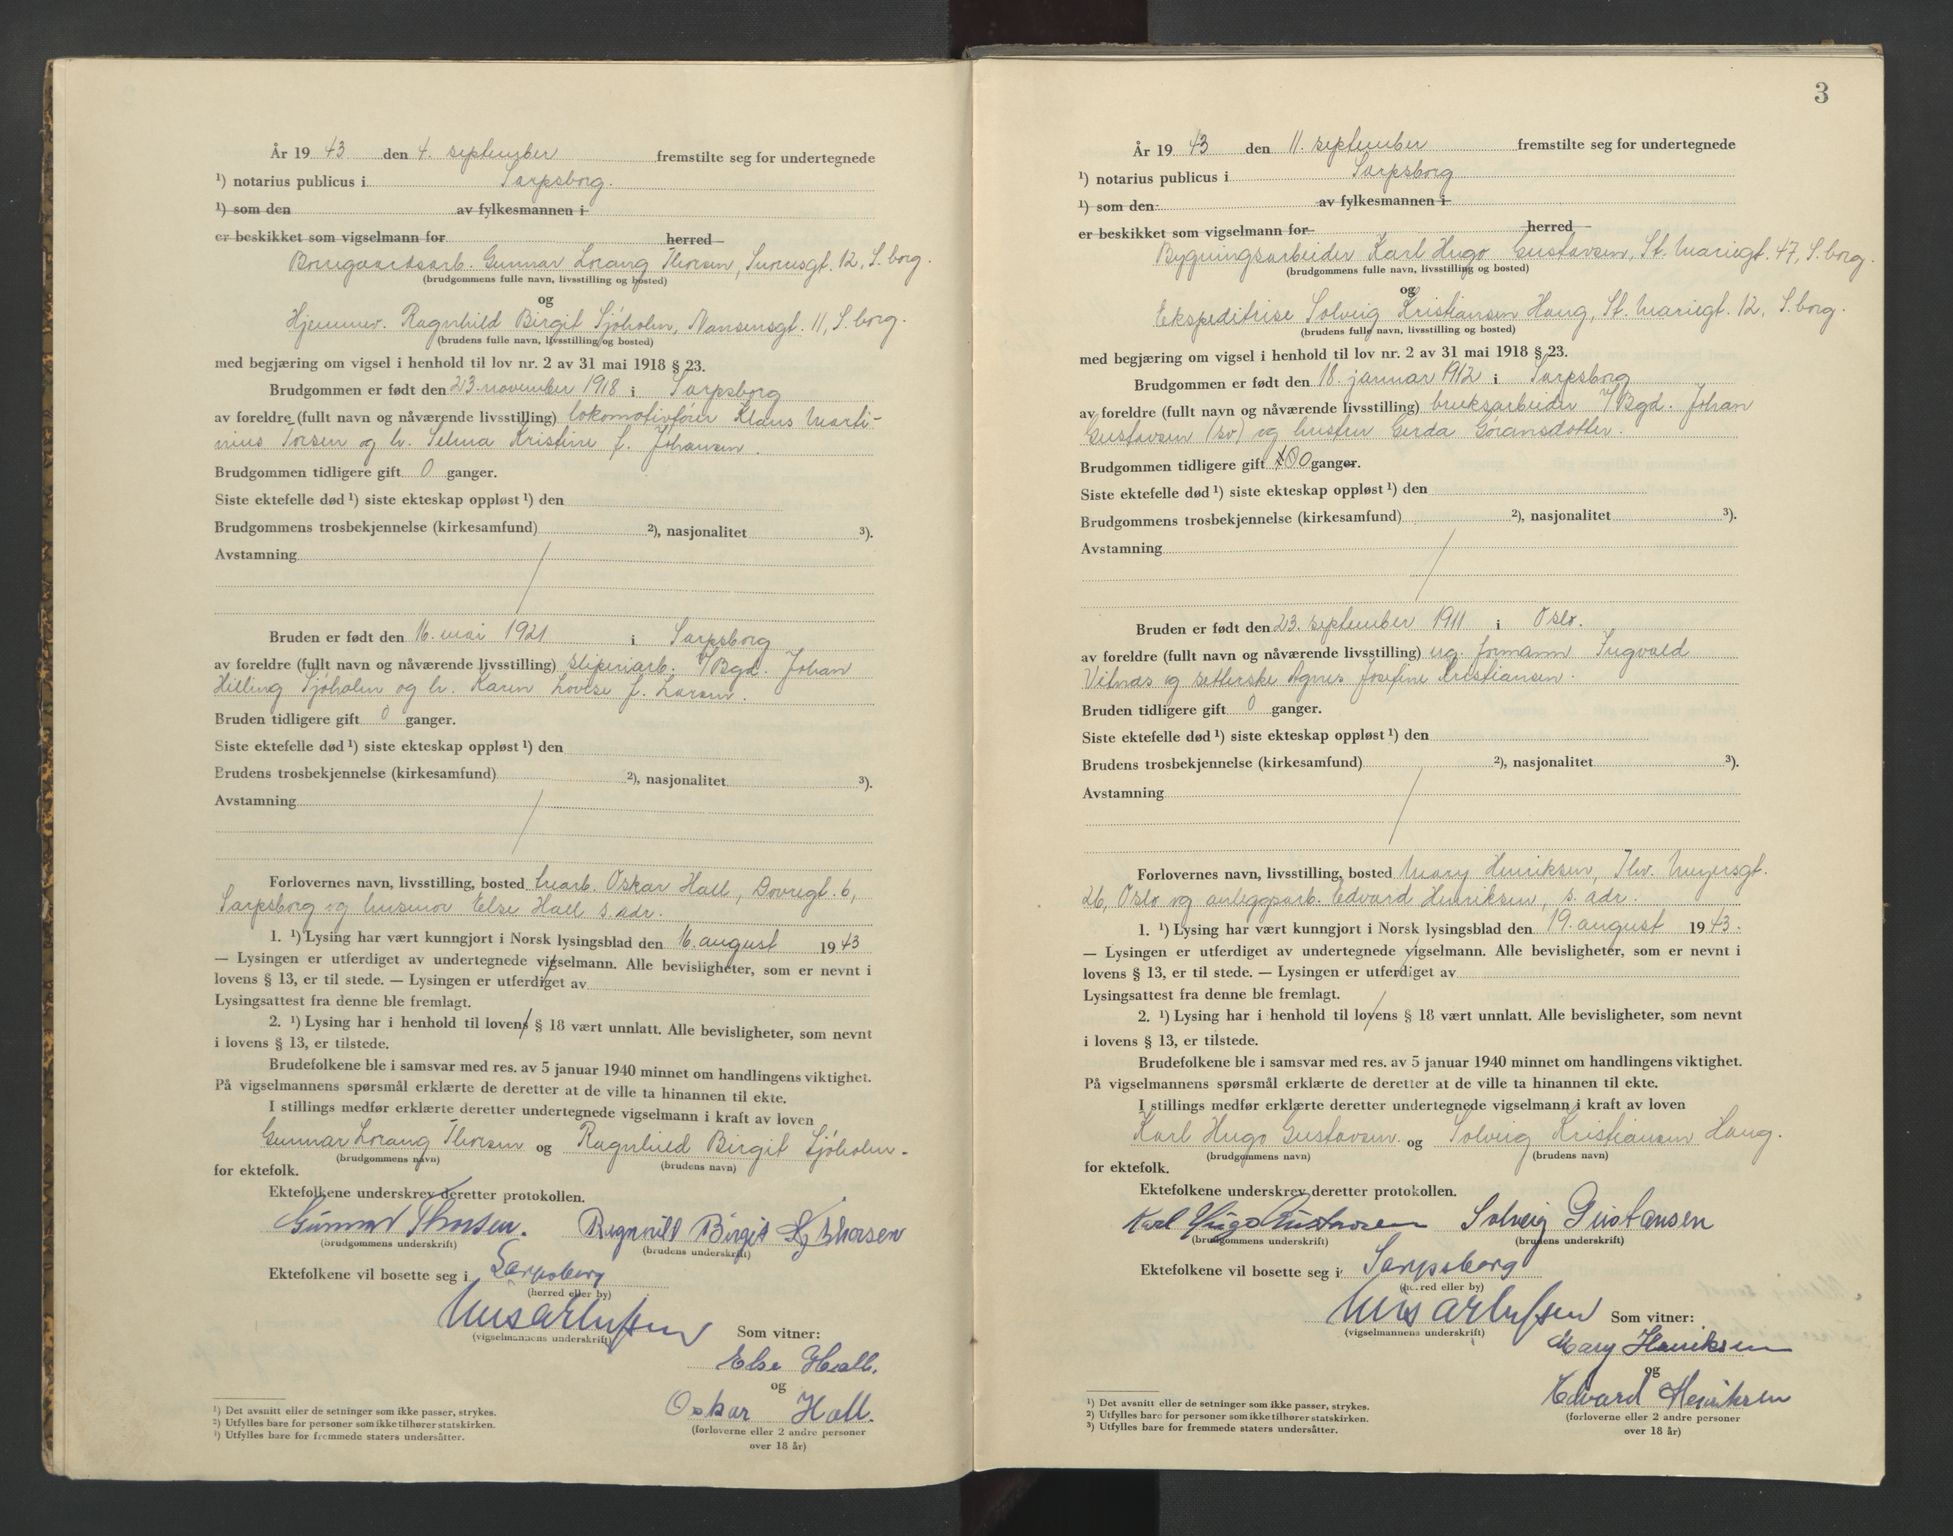 År 19 43 den 4. september fremstilte seg for undertegnede
¹) notarius publicus i Sarpsborg.
¹) som den av fylkesmannen i
er beskikket som vigselmann for herred
Borregaardsarb. Gunnar Lorang Thorsen, 12, S.borg.
(brudgommens fulle navn, livsstilling og bosted)
og
Hjemmev. Ragnhild Birgit Sjøholm, Nansensgt. 11, S.borg.
(brudens fulle navn, livsstilling og bosted)
med begjæring om vigsel i henhold til lov nr. 2 av 31 mai 1918 § 23.
Brudgommen er født den 23. november 1918 i Sarpsborg
av foreldre (fullt navn og nåværende livsstilling) lokomotivfører Klaus Marti-
nius Torsen og h. Telma Kristine f. Johansen.
Brudgommen tidligere gift 0 ganger.
Siste ektefelle død ¹) siste ekteskap oppløst ¹) den
Brudgommens trosbekjennelse (kirkesamfund) ²), nasjonalitet ³).
Avstamning
Bruden er født den 16. mai 1921 i Sarpsborg
av foreldre (fullt navn og nåværende livsstilling) sliperiarb. v/Bgd. Johan
Hilling Sjøholm og h. Karen Lovise f. Larsen.
Bruden tidligere gift 0 ganger.
Siste ektefelle død ¹) siste ekteskap oppløst ¹) den
Brudens trosbekjennelse (kirkesamfund) ²), nasjonalitet ³).
Avstamning
Forlovernes navn, livsstilling, bosted Oskar Hall, Dovregt. 6,
Sarpsborg og husmor Else Hall s. adr.
1. ¹) Lysing har vært kunngjort i Norsk lysingsblad den 16. august 19 43
— Lysingen er utferdiget av undertegnede vigselmann. Alle bevisligheter, som er nevnt i
lovens § 13, er til stede. — Lysingen er utferdiget av
Lysingsattest fra denne ble fremlagt.
2. ¹) Lysing har i henhold til lovens § 18 vært unnlatt. Alle bevisligheter, som nevnt
i lovens § 13, er tilstede.
Brudefolkene ble i samsvar med res. av 5 januar 1940 minnet om handlingens viktighet.
På vigselmannens spørsmål erklærte de deretter at de ville ta hinannen til ekte.
I stillings medfør erklærte deretter undertegnede vigselmann i kraft av loven
Gunnar Lorang Thorsen og Ragnhild Birgit Sjøholm.
(brudgommens navn) (brudens navn)
for ektefolk.
Ektefolkene underskrev deretter protokollen.
Gunnar Thorsen. Ragnhild Birgit Sj Thorsen
(brudgommens underskrift) (brudens underskrift)
Ektefolkene vil bosette seg i Sarpsborg
(herred eller by)
(vigselmannens underskrift) Som vitner:
Else Hall.
og
Oskar Hall.
(forloverne eller 2 andre personer
over 18 år)
¹) Det avsnitt eller de setninger som ikke passer, strykes.
²) Utfylles bare for personer som ikke tilhører statskirken.
³) Utfylles bare for fremmede staters undersåtter.
3
År 19 43 den 11. september fremstilte seg for undertegnede
¹) notarius publicus i Sarpsborg
¹) som den av fylkesmannen i
er beskikket som vigselmann for herred
Bygningsarbeider Karl Hugo Gustavsen, St. Mariegt. 47, S.borg.
(brudgommens fulle navn, livsstilling og bosted)
og
Ekspeditrise Solveig Kristiansen Haug, St. Mariegt. 12, S.borg.
(brudens fulle navn, livsstilling og bosted)
med begjæring om vigsel i henhold til lov nr. 2 av 31 mai 1918 § 23.
Brudgommen er født den 18. januar 1912 i Sarpsborg
av foreldre (fullt navn og nåværende livsstilling) bruksarbeider v/Bgd. Johan
Gustavsen (sv) og hustru Gerda Göransdotter.
Brudgommen tidligere gift 0 ganger.
Siste ektefelle død ¹) siste ekteskap oppløst ¹) den
Brudgommens trosbekjennelse (kirkesamfund) ²), nasjonalitet ³).
Avstamning
Bruden er født den 23. september 1911 i Oslo.
av foreldre (fullt navn og nåværende livsstilling) ug. formann Ingvald
Vilnes og setterske Agnes Josefine Kristiansen.
Bruden tidligere gift 0 ganger.
Siste ektefelle død ¹) siste ekteskap oppløst ¹) den
Brudens trosbekjennelse (kirkesamfund) ²), nasjonalitet ³).
Avstamning
Forlovernes navn, livsstilling, bosted Mary Henriksen, Thv. Meyersgt.
26, Oslo og anleggsarb. Edvard Henriksen, s. adr.
1. ¹) Lysing har vært kunngjort i Norsk lysingsblad den 19. august 19 43.
— Lysingen er utferdiget av undertegnede vigselmann. Alle bevisligheter, som er nevnt i
lovens § 13, er til stede. — Lysingen er utferdiget av
Lysingsattest fra denne ble fremlagt.
2. ¹) Lysing har i henhold til lovens § 18 vært unnlatt. Alle bevisligheter, som nevnt
i lovens § 13, er tilstede.
Brudefolkene ble i samsvar med res. av 5 januar 1940 minnet om handlingens viktighet.
På vigselmannens spørsmål erklærte de deretter at de ville ta hinannen til ekte.
I stillings medfør erklærte deretter undertegnede vigselmann i kraft av loven
Karl Hugo Gustavsen og Solveig Kristiansen Haug.
(brudgommens navn) (brudens navn)
for ektefolk.
Ektefolkene underskrev deretter protokollen.
Karl Hugo Gustavsen Solveig Gustavsen
(brudgommens underskrift) (brudens underskrift)
Ektefolkene vil bosette seg i Sarpsborg
(herred eller by)
(vigselmannens underskrift) Som vitner:
Mary Henriksen
og
Edvard Henriksen
(forloverne eller 2 andre personer
over 18 år)
¹) Det avsnitt eller de setninger som ikke passer, strykes.
²) Utfylles bare for personer som ikke tilhører statskirken.
³) Utfylles bare for fremmede staters undersåtter.